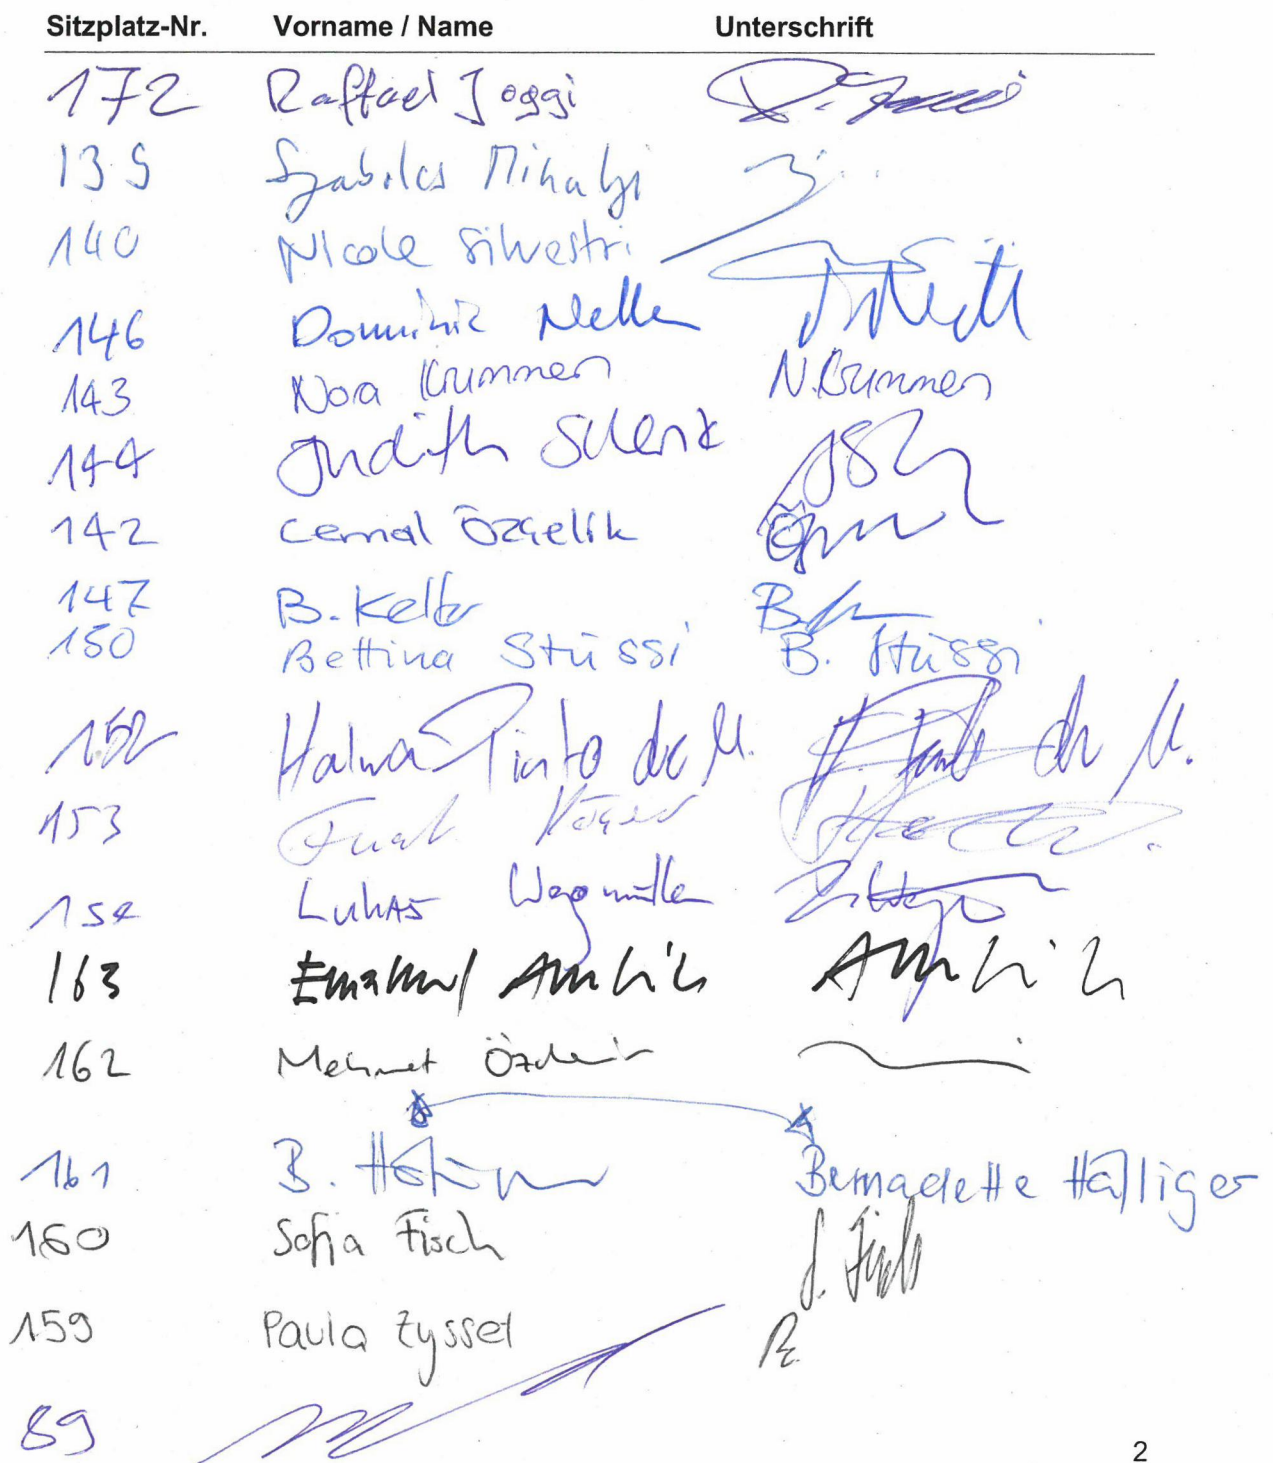 Sitzplatz-Nr. Vorname / Name Unterschrift
172 Raffael Joggi
139 Szabolcs Mihalyi
140 Nicole Silvestri
146 Dominic Nellen
143 Nora Krummen N. Krummen
144 Judith Schenk
142 Cemal Özçelik
147 B. Keller
150 Bettina Stüssi B. Stüssi
152 Halua Pinto de M. H. Pinto de M.
153
154 Lukas Wegmüller
163 Emanuel Amhil
162 Mehmet Özdemir
161 B. Bernadette Häfliger
160 Sofia Fisch S. Fisch
159 Paula Zyssel
89
2